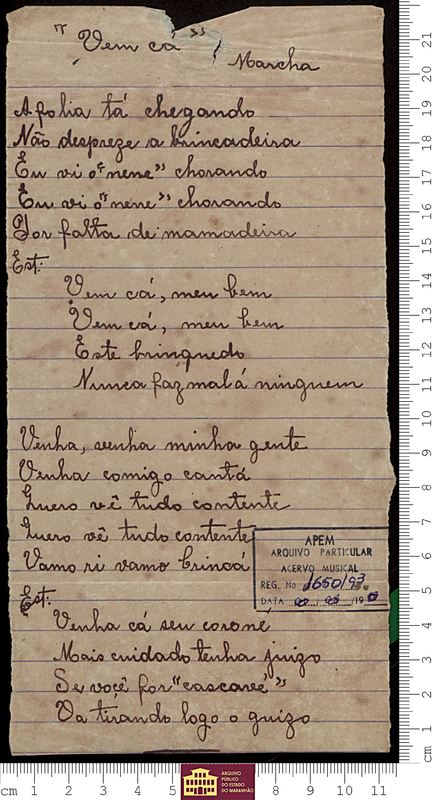 "Vem cá"
Marcha
A folia tá chegando
Não despreze a brincadeira
Eu vi o "nene" chorando
Eu vi o "nene" chorando
Por falta de mamadeira
Est:
Vem cá, meu bem
Vem cá, meu bem
Este brinquedo
Nunca faz mal á ninguem
Venha, venha minha gente
Venha comigo cantá
Quero vê tudo contente
Quero vê tudo contente
Vamo ri vamo brincá
APEM
ARQUIVO PARTICULAR
ACERVO MUSICAL
REG. No 1650/93
DATA / /19
Est:
Venha cá seu coroné
Mais cuidado tenha juizo
Se voçê for "cascavé"
Va tirando logo o guizo
ARQUIVO
PÚBLICO
DO ESTADO
DO MARANHÃO
cm 1 2 3 4 5 8 9 10 11
cm 1 2 3 4 5 6 7 8 9 10 11 12 13 14 15 16 17 18 19 20 21